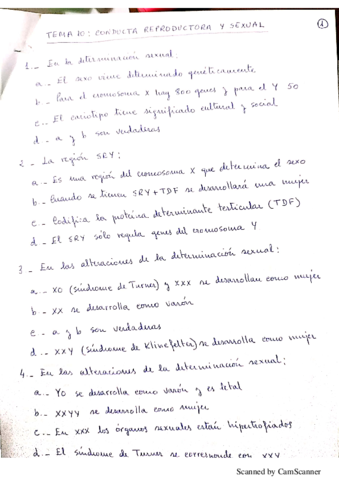 TEMA 10: CONDUCTA REPRODUCTORA Y SEXUAL
1
1.- En la determinación sexual:
a.- El sexo viene determinado genéticamente
b.- Para el cromosoma X hay 800 genes y para el Y 50
c.- El cariotipo tiene significado cultural y social
d.- a y b son verdaderas
2.- La región SRY:
a.- Es una región del cromosoma X que determina el sexo
b.- Cuando se tienen SRY+TDF se desarrollará una mujer
c.- Codifica la proteína determinante testicular (TDF)
d.- El SRY sólo regula genes del cromosoma Y
3.- En las alteraciones de la determinación sexual:
a.- XO (Síndrome de Turner) y XXX se desarrollan como mujer
b.- XX se desarrolla como varón
c.- a y b son verdaderas
d.- XXY (Síndrome de Klinefelter) se desarrolla como mujer
4.- En las alteraciones de la determinación sexual:
a.- YO se desarrolla como varón y es letal
b.- XXYY se desarrolla como mujer
c.- En XXX los órganos sexuales están hipertrofiados
d.- El síndrome de Turner se corresponde con XXY
Scanned by CamScanner